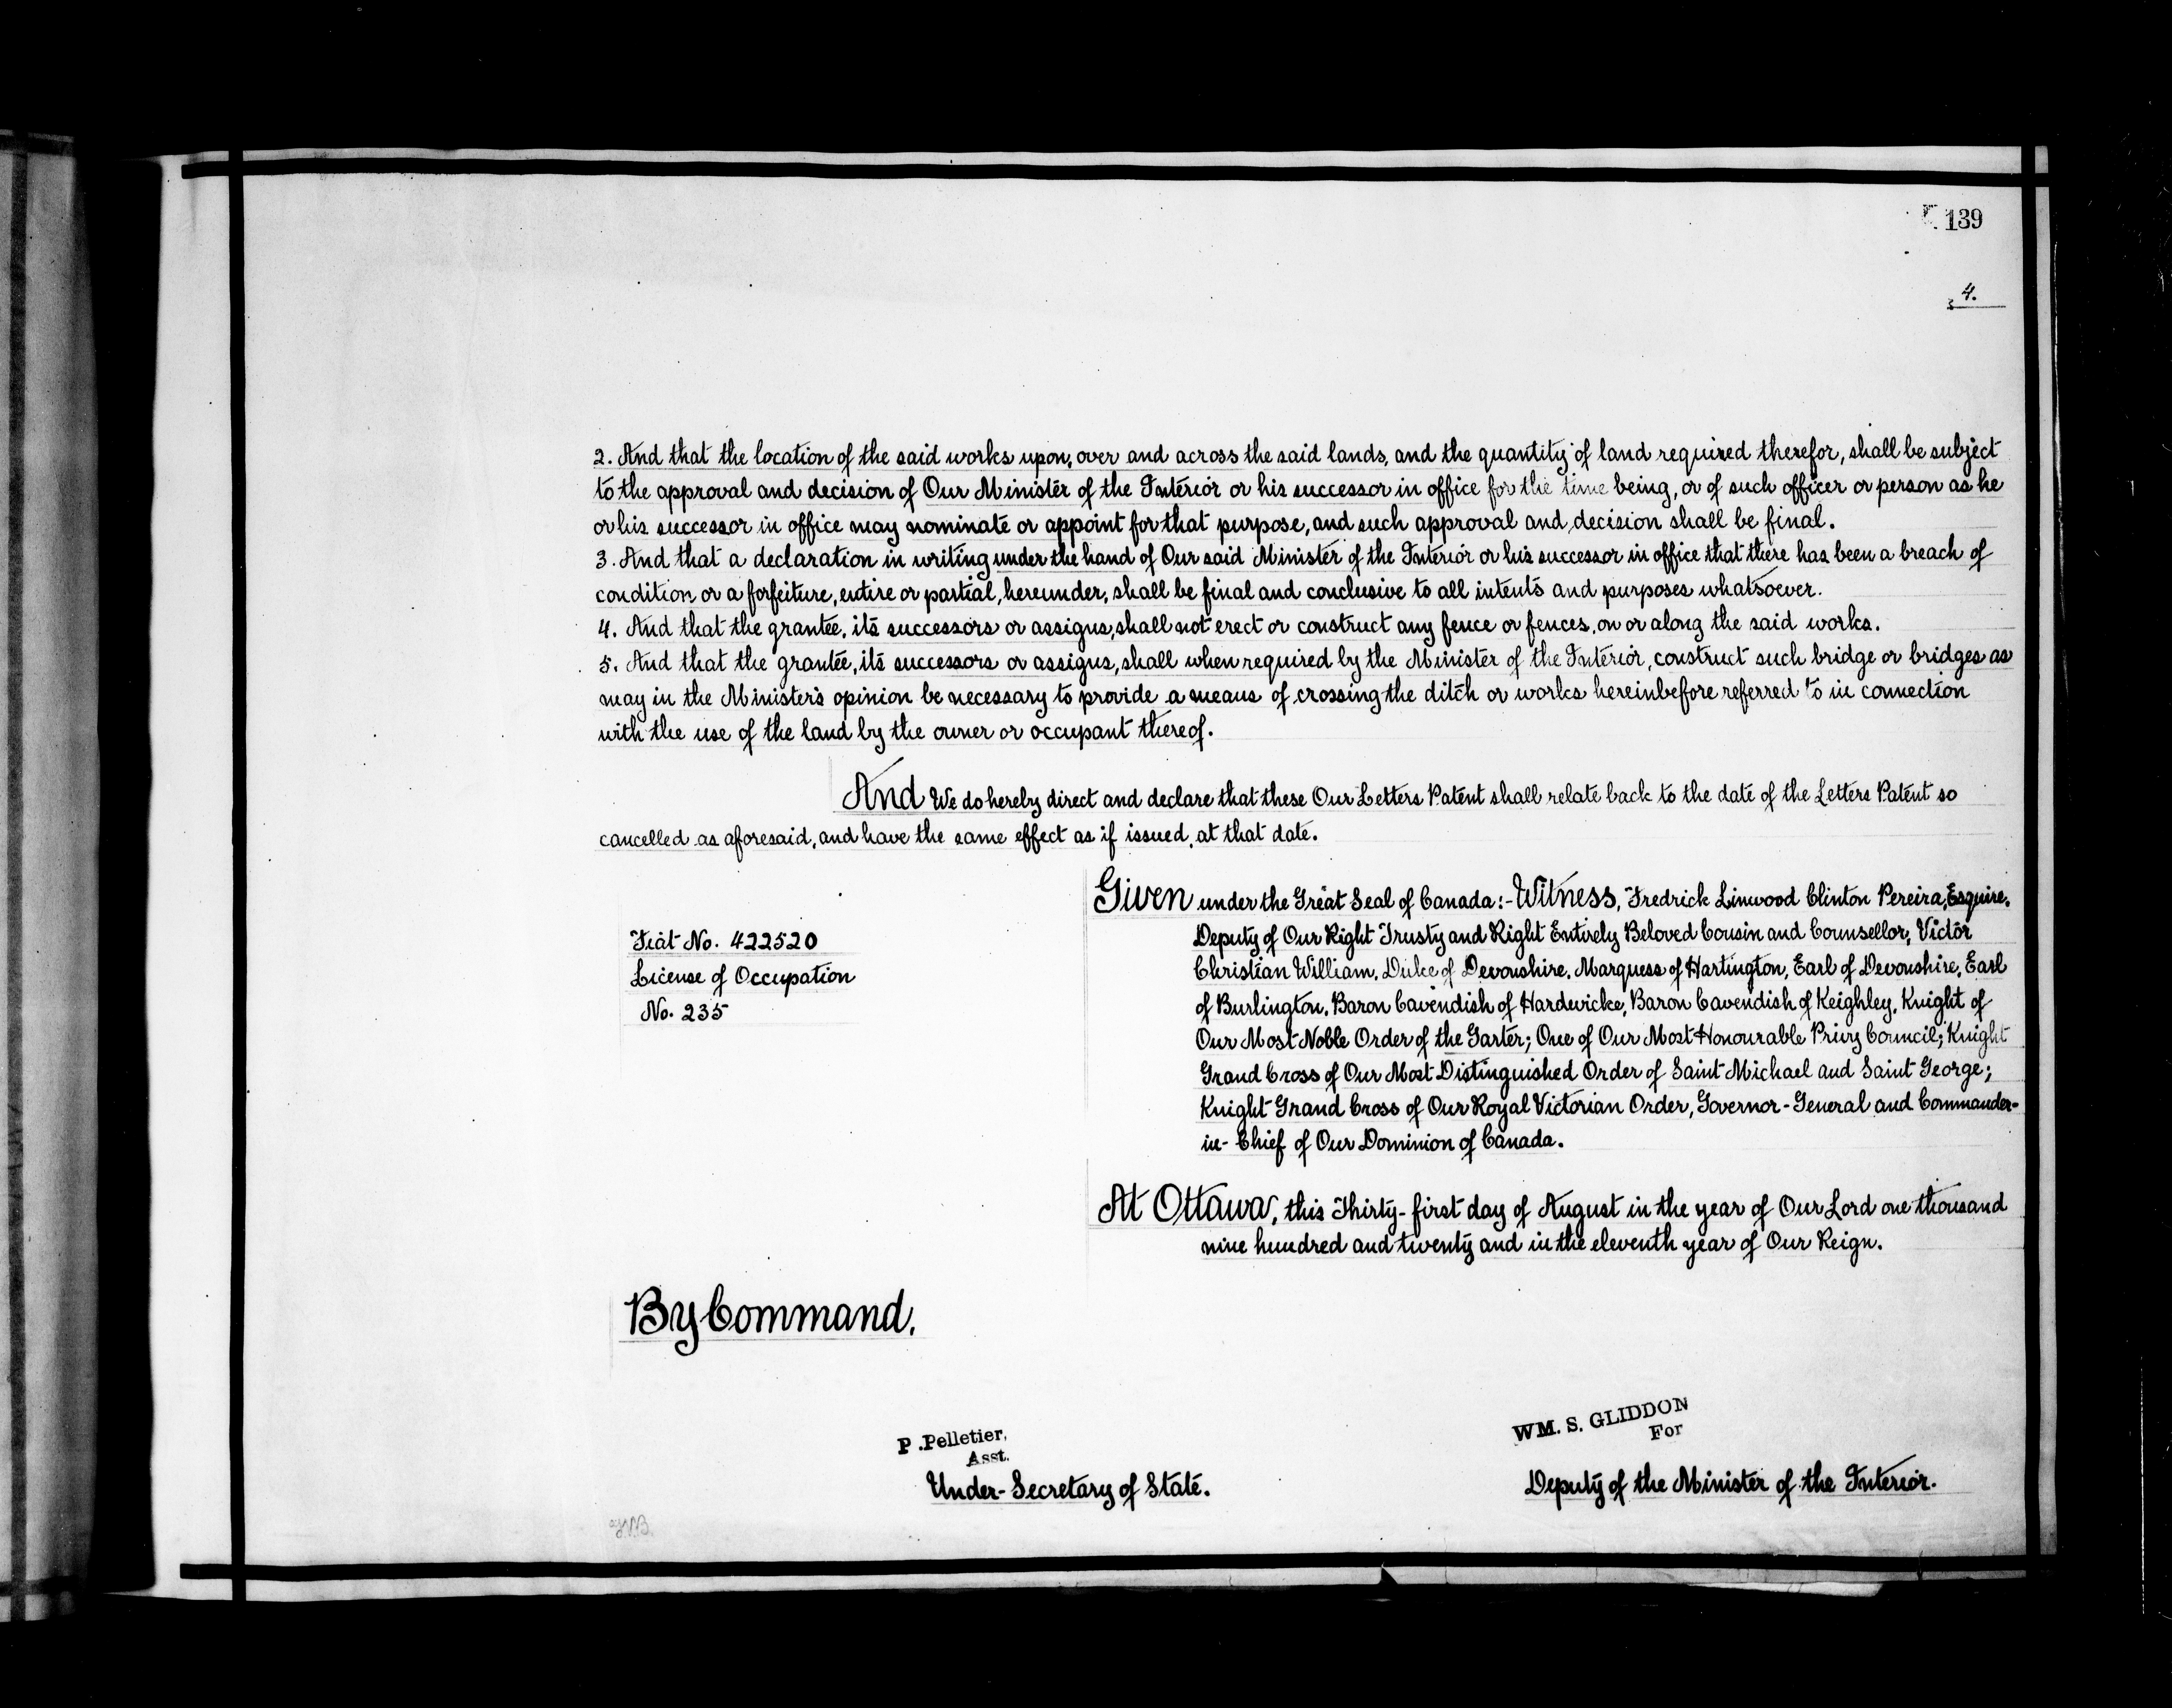 139
4.
2. And that the location of the said works upon, over and across the said lands, and the quantity of land required therefor, shall be subject
to the approval and decision of Our Minister of the Interior or his successor in office for the time being, or of such officer or person as he
or his successor in office may nominate or appoint for that purpose, and such approval and decision shall be final.
3. And that a declaration in writing under the hand of Our said Minister of the Interior or his successor in office that there has been a breach of
condition or a forfeiture, entire or partial, hereunder, shall be final and conclusive to all intents and purposes whatsoever.
4. And that the grantee, its successors or assigns, shall not erect or construct any fence or fences, on or along the said works.
5. And that the grantee, its successors or assigns, shall when required by the Minister of the Interior, construct such bridge or bridges as
may in the Minister's opinion be necessary to provide a means of crossing the ditch or works hereinbefore referred to in connection
with the use of the land by the owner or occupant thereof.
And We do hereby direct and declare that these Our Letters Patent shall relate back to the date of the Letters Patent so
cancelled as aforesaid, and have the same effect as if issued, at that date.
Given under the Great Seal of Canada:- Witness, Fredrick Linwood Clinton Pereira, Esquire,
Deputy of Our Right Trusty and Right Entirely Beloved Cousin and Counsellor, Victor
Christian William, Duke of Devonshire, Marquess of Hartington, Earl of Devonshire, Earl
of Burlington, Baron Cavendish of Hardwicke, Baron Cavendish of Keighley, Knight of
Our Most Noble Order of the Garter; One of Our Most Honourable Privy Council; Knight
Grand Cross of Our Most Distinguished Order of Saint Michael and Saint George;
Knight Grand Cross of Our Royal Victorian Order, Governor-General and Commander-
in-Chief of Our Dominion of Canada.
Fiat No. 422520
License of Occupation
No. 235
At Ottawa, this Thirty-first day of August in the year of Our Lord one thousand
nine hundred and twenty and in the eleventh year of Our Reign.
By Command,
P. Pelletier,
Asst.
Under-Secretary of State.
WM. S. GLIDDON
For
Deputy of the Minister of the Interior.